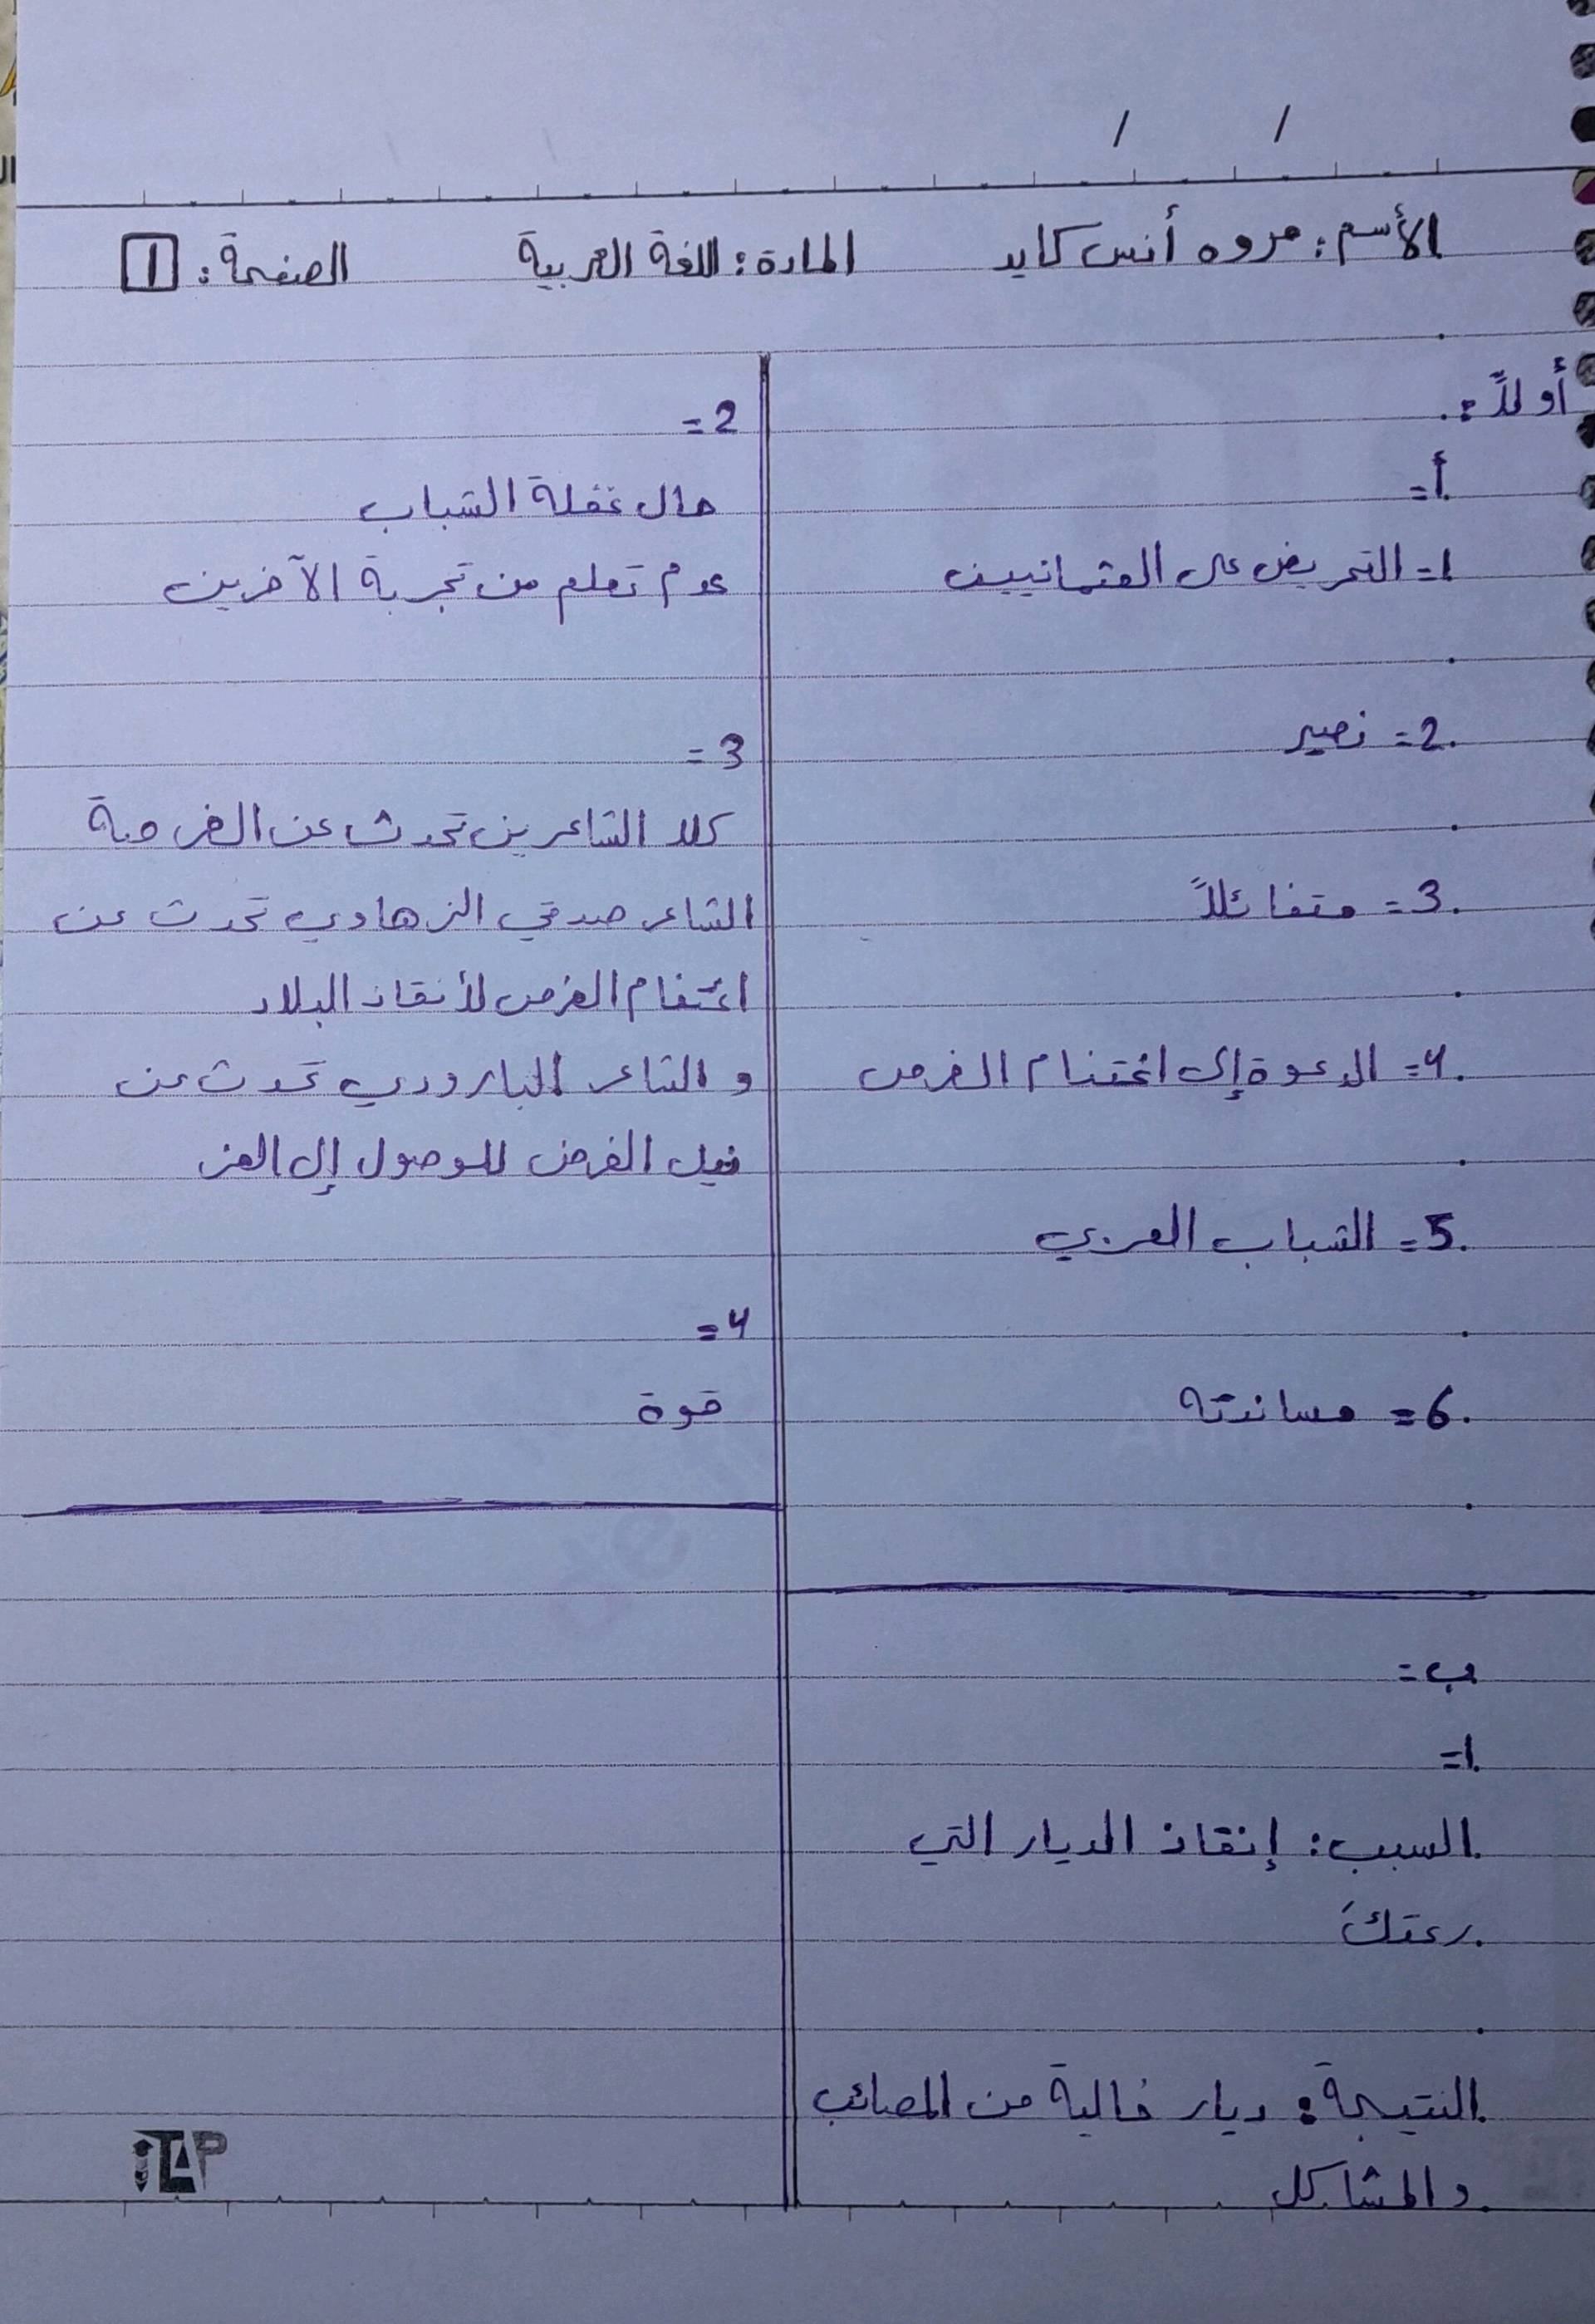 الأسم: مروه أنس كايد المادة: اللغة العربية الصفحة: 1
أولاً:
أ=
1= التحريض على العثمانيين
2= نصير
3= متفائلاً
4= الدعوة إلى اغتنام الفرص
5= الشباب العربي
6= مساندته
ب=
1=
السبب: إنقاذ الديار التي
رعتكَ
النتيجة: ديار خالية من المصائب
والمشاكل
2=
حال غفلة الشباب
عدم تعلم من تجربة الآخرين
3=
كلا الشاعرين تحدث عن الفرصة
الشاعر صدقي الزهاوي تحدث عن
اغتنام الفرص لأنقاذ البلاد
و الشاعر البارودي تحدث عن
نيل الفرص للوصول إلى العز
4=
قوة
iTAP